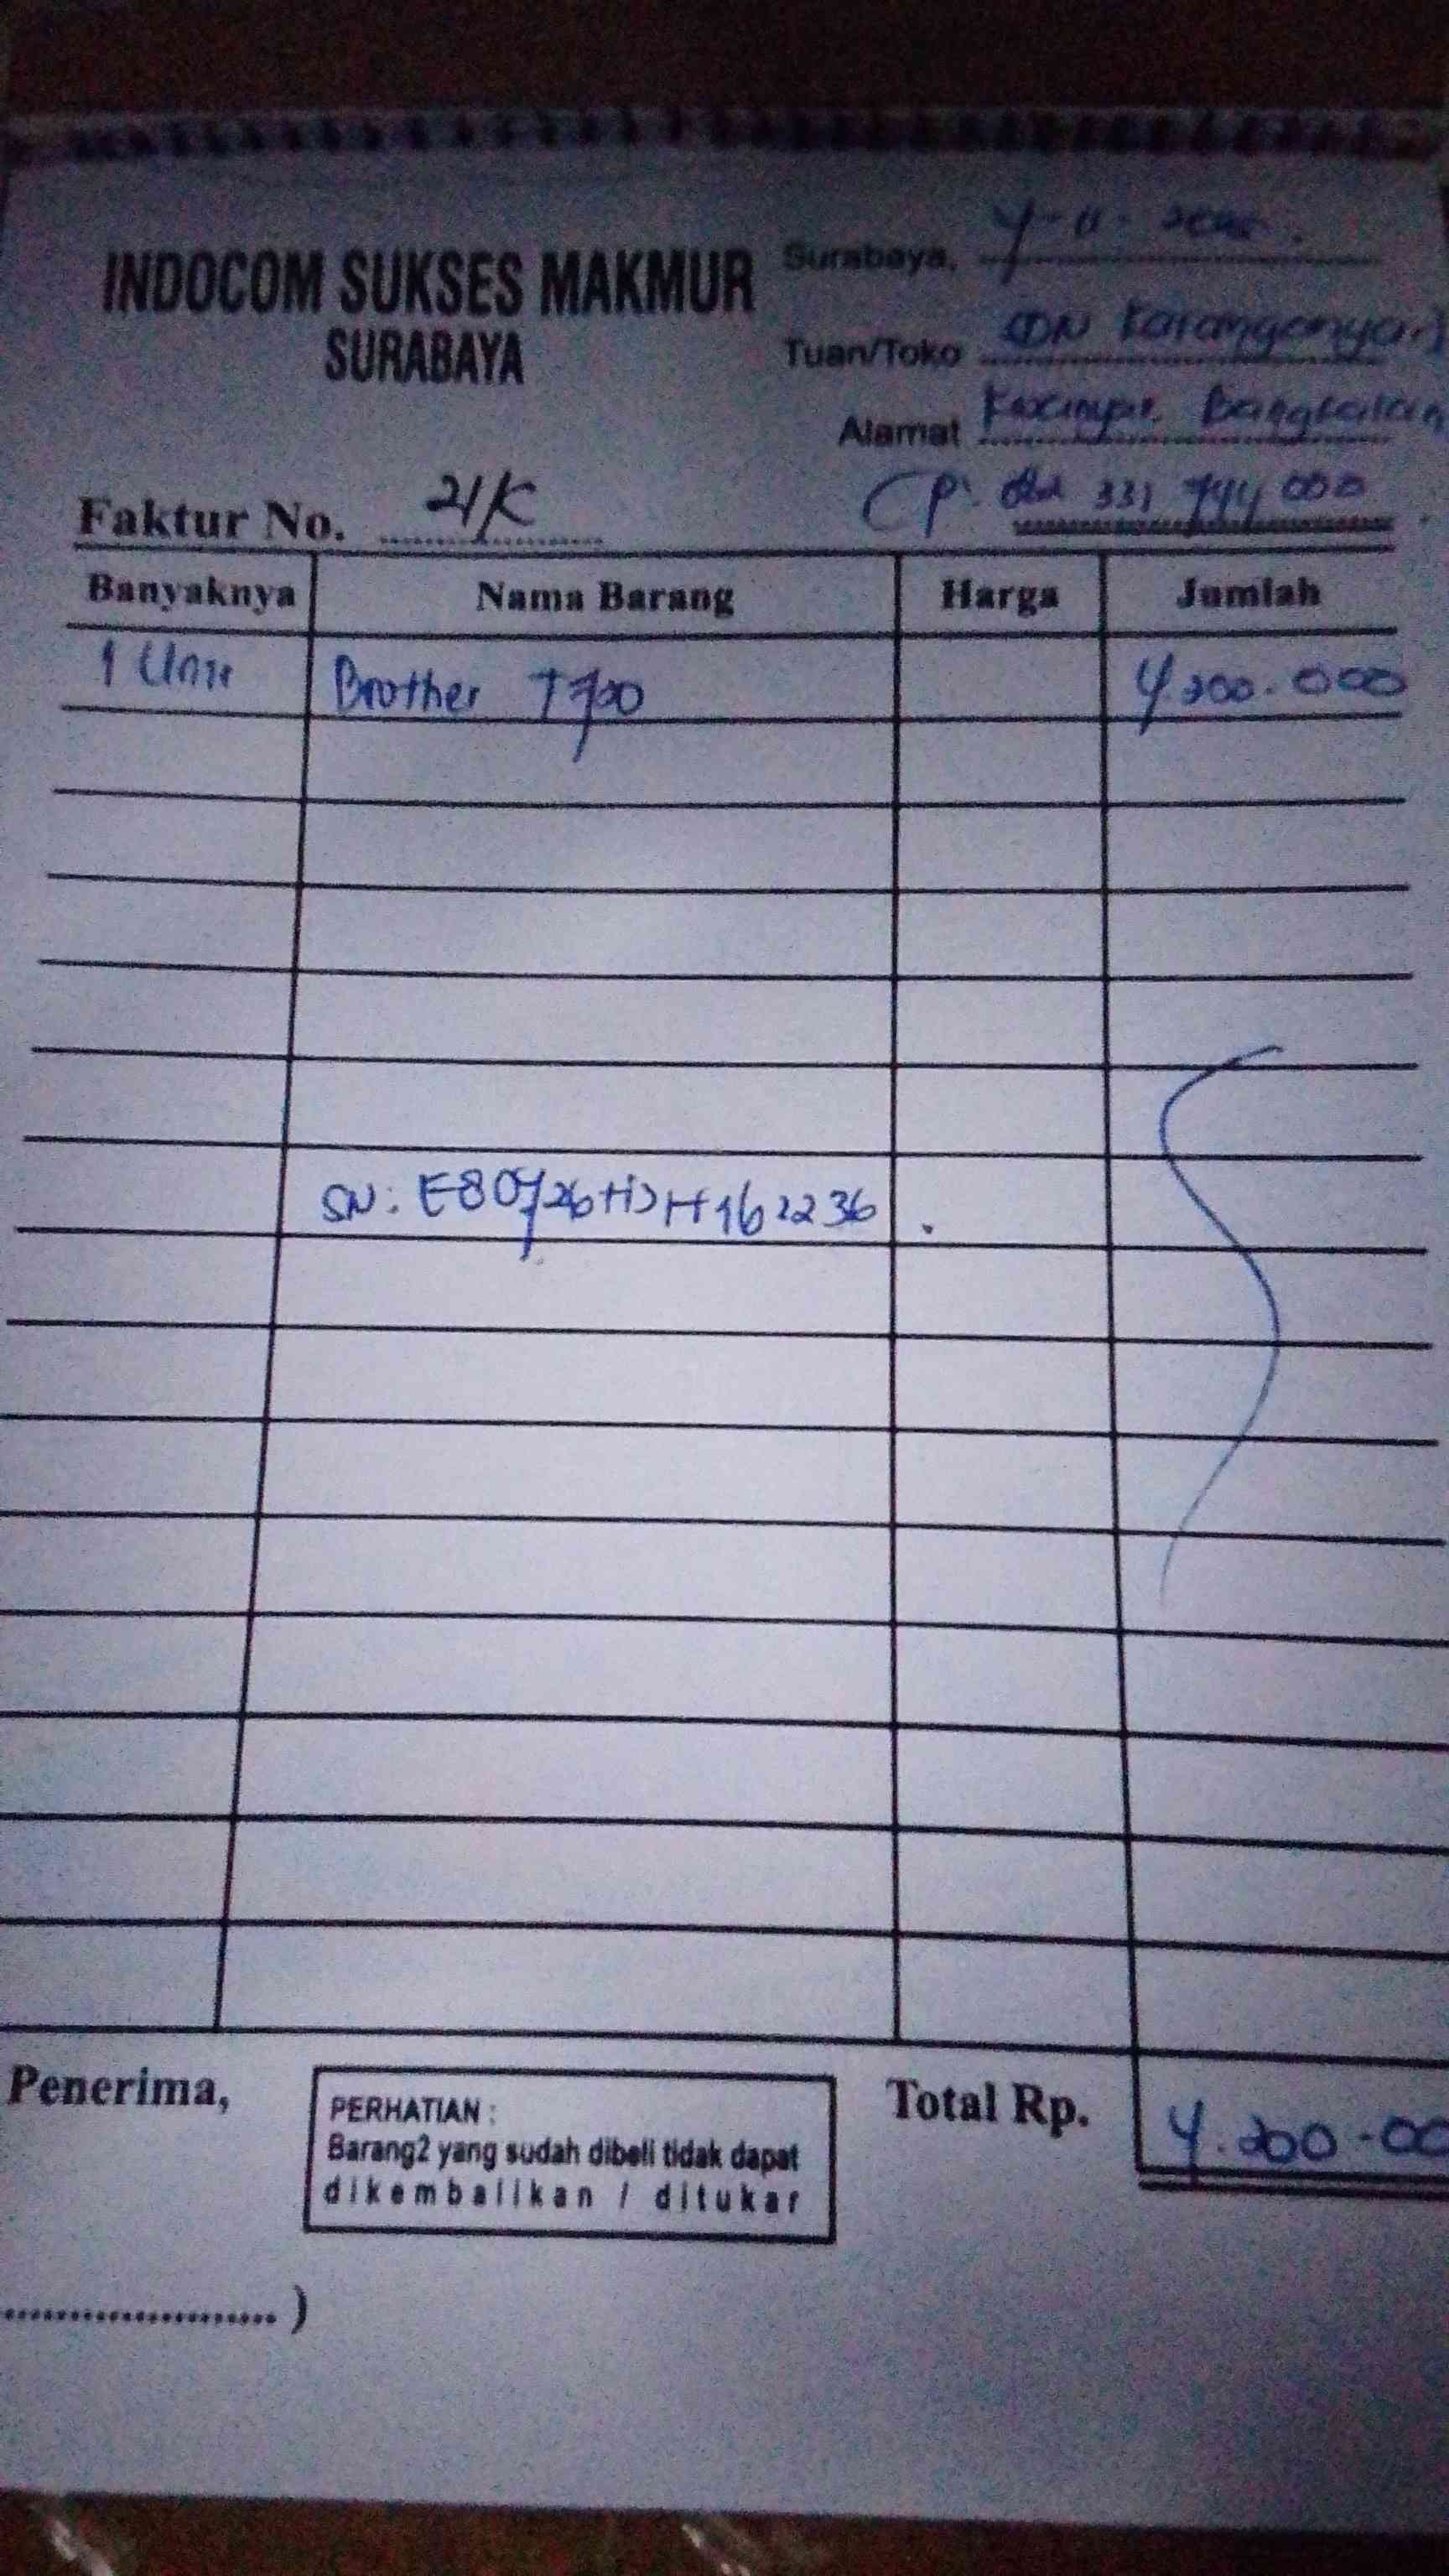 INDOCOM SUKSES MAKMUR
SURABAYA
Surabaya, 4-11-
Tuan/Toko SDN Karanganyar
Alamat Bangkalan
Faktur No. 21K
CP. 331 744 000
Banyaknya Nama Barang Harga Jumlah
1 Unit Brother T700 4.200.000
SN: E80726H2H162236
Penerima,
PERHATIAN :
Barang2 yang sudah dibeli tidak dapat
dikembalikan / ditukar
Total Rp. 4.200.00
.................... )